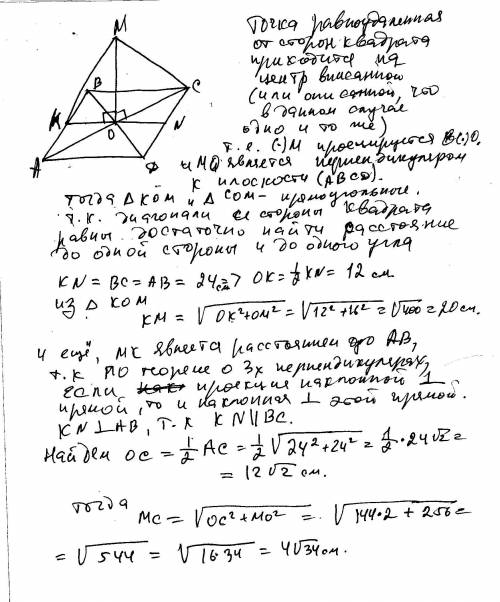 M
B
C
K
O
N
A
D
Точка равноудаленная
от сторон квадрата
приходится на
центр вписанной
(или описанной, что
в данном случае
одно и то же)
т.е. (·)M проецируется в (·)O.
и MO является перпендикуляром
к плоскости (ABCD).
Тогда △KOM и △COM – прямоугольные.
т.к. диагонали и стороны квадрата
равны достаточно найти расстояние
до одной стороны и до одного угла
KN = BC = AB = 24 см => OK = ½ KN = 12 см.
из △ KOM
KM = √OK²+OM² = √12²+16² = √400 = 20 см.
и ещё, MK является расстоянием до AB,
т.к по теореме о 3х перпендикулярах,
если проекция наклонной ⊥
прямой, то и наклонная ⊥ этой прямой.
KN ⊥ AB, т.к KN || BC.
Найдем OC = ½ AC = ½ √24²+24² = ½ · 24√2 =
= 12√2 см.
тогда
MC = √OC²+MO² = √144·2 + 256 =
= √544 = √16·34 = 4√34 см.